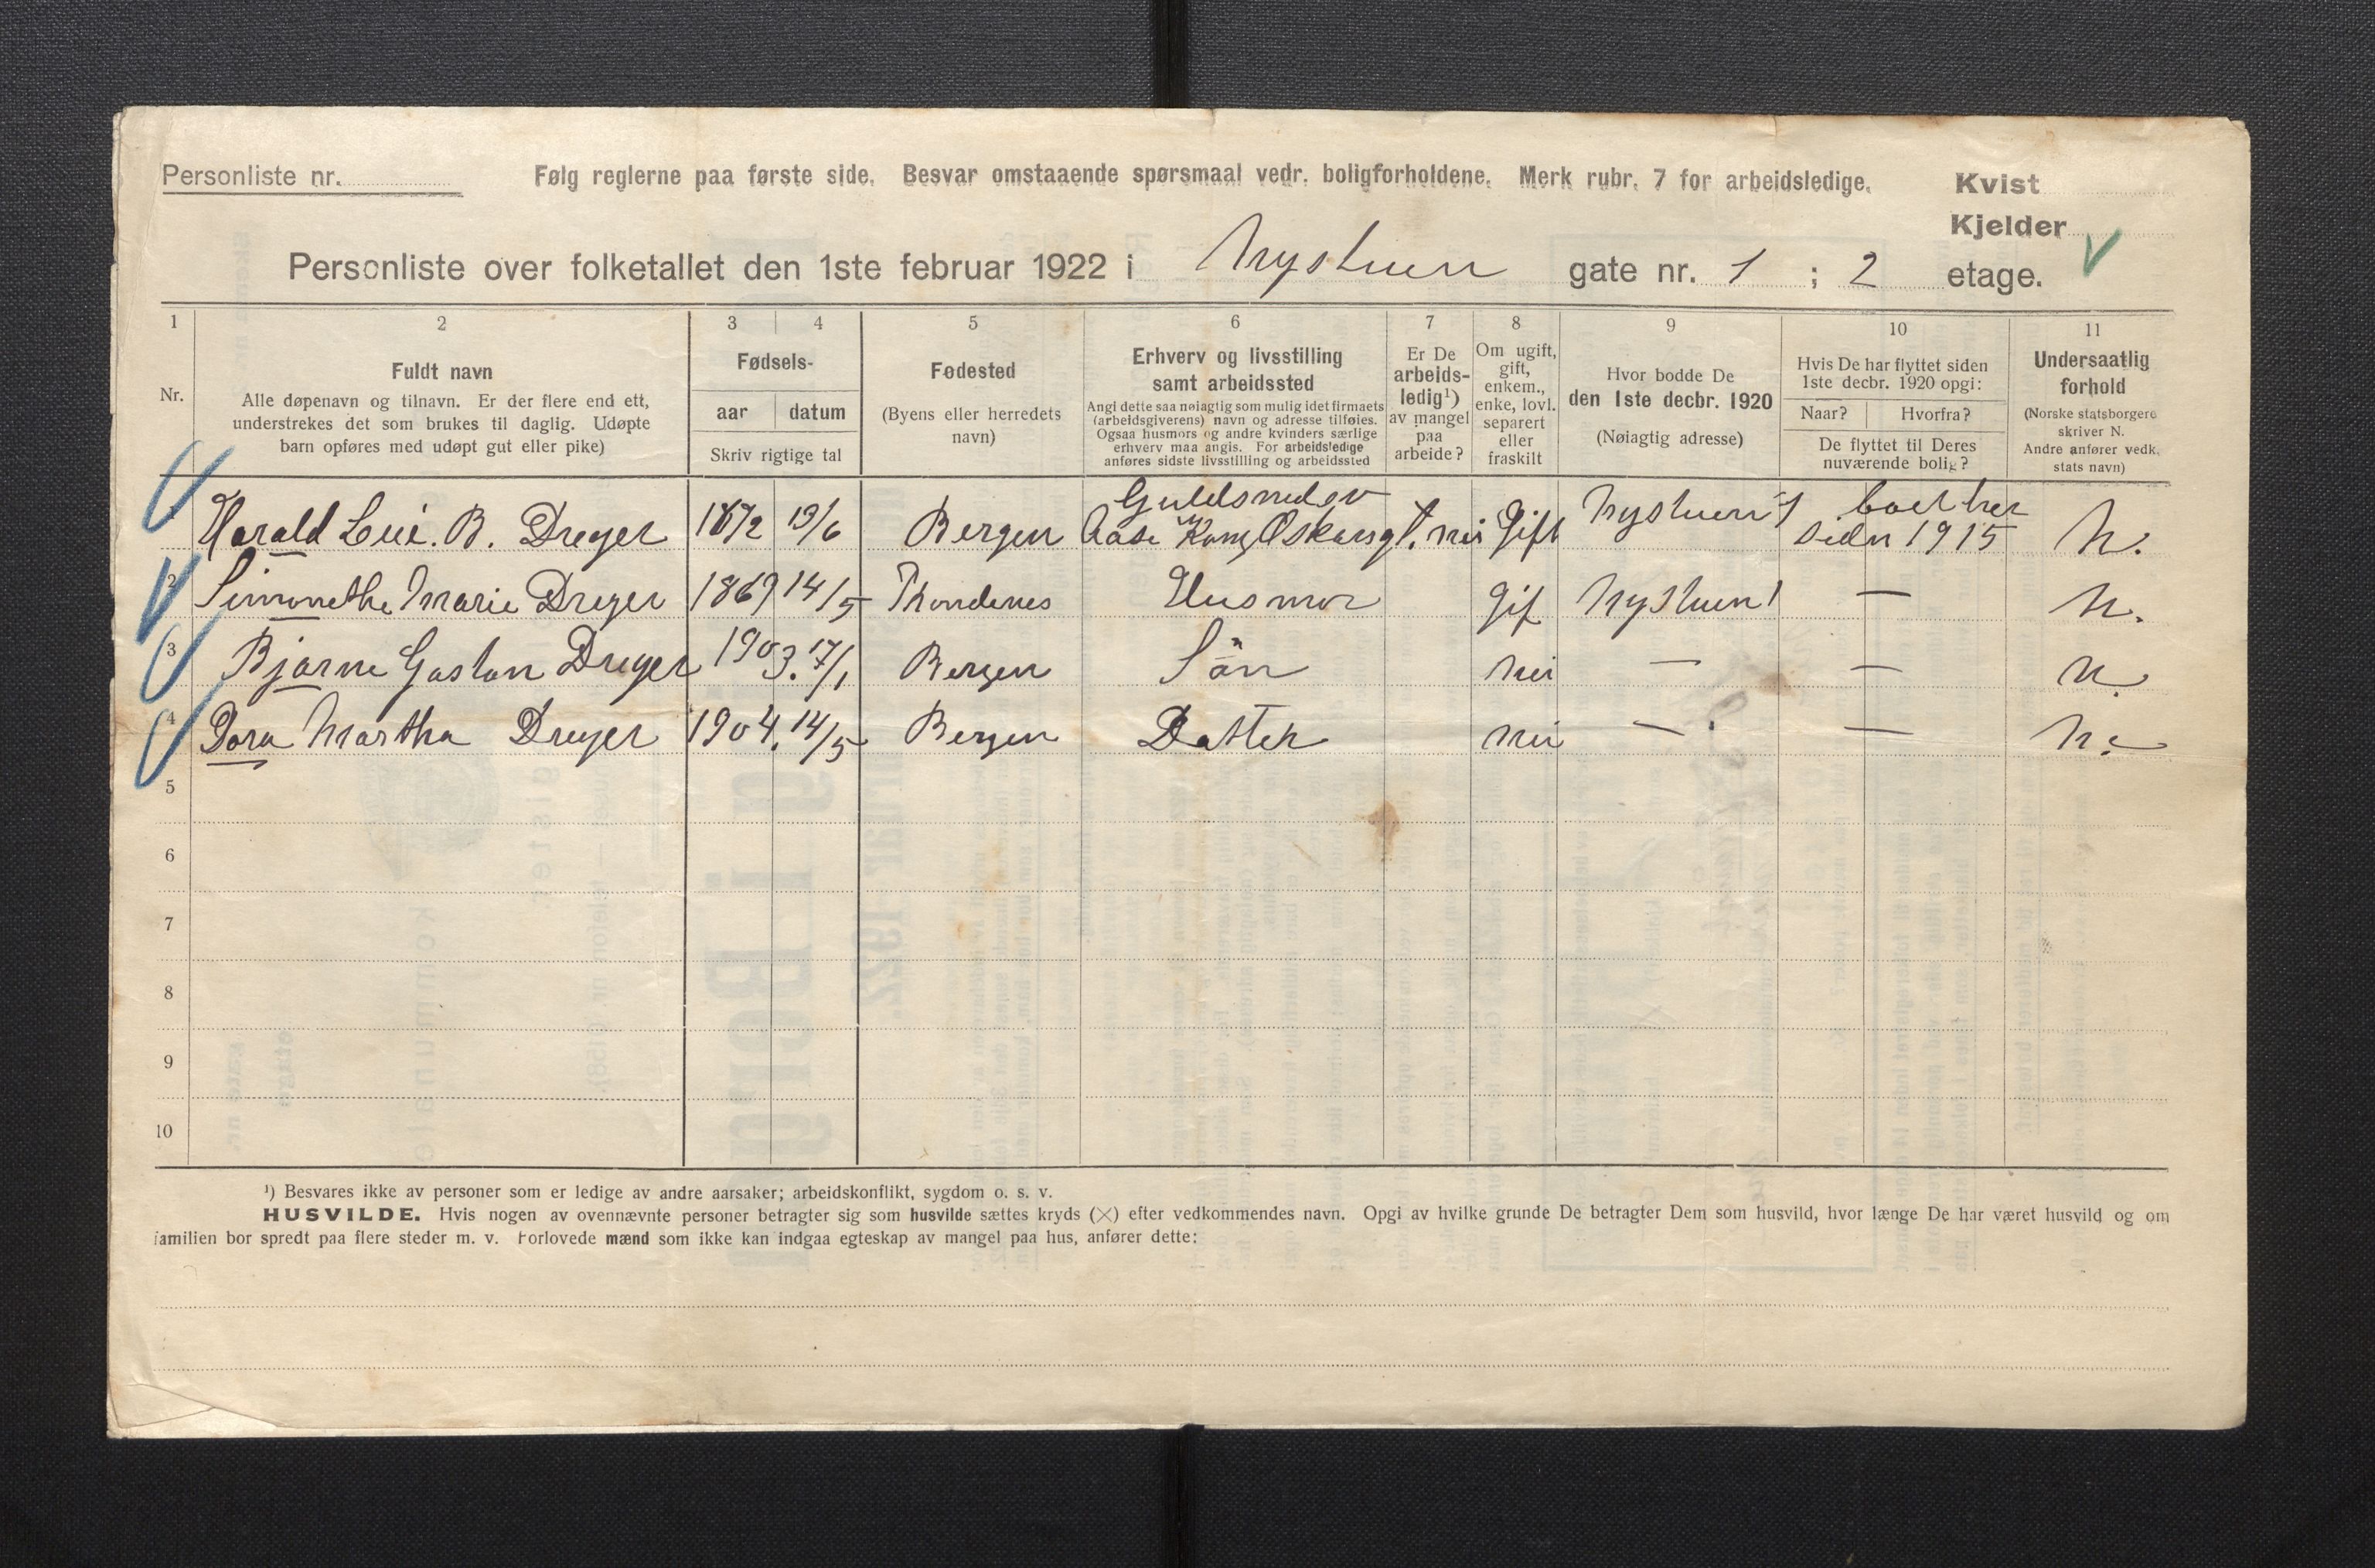 Personliste nr.
Følg reglerne paa første side. Besvar omstaaende spørsmaal vedr. boligforholdene. Merk rubr. 7 for arbeidsledige.
Kvist
Kjelder
Personliste over folketallet den 1ste februar 1922 i Nystuen gate nr. 1 ; 2 etage.
1 2 3 4 5 6 7 8 9 10 11
Nr.
Fuldt navn
Alle døpenavn og tilnavn. Er der flere end ett,
understrekes det som brukes til daglig. Udøpte
barn opføres med udøpt gut eller pike)
Fødsels-
aar datum
Skriv rigtige tal
Fødested
(Byens eller herredets
navn)
Erhverv og livsstilling
samt arbeidssted
Angi dette saa nøiagtig som mulig idet firmaets
(arbeidsgiverens) navn og adresse tilføies.
Ogsaa husmors og andre kvinders særlige
erhverv maa angis. For arbeidsledige
anføres sidste livsstilling og arbeidssted
Er De
arbeids-
ledig¹)
av mangel
paa
arbeide?
Om ugift,
gift,
enkem.,
enke, lovl.
separert
eller
fraskilt
Hvor bodde De
den 1ste decbr. 1920
(Nøiagtig adresse)
Hvis De har flyttet siden
1ste decbr. 1920 opgi:
Naar? Hvorfra?
De flyttet til Deres
nuværende bolig?
Undersaatlig
forhold
(Norske statsborgere
skriver N.
Andre anfører vedk.
stats navn)
Harald B. Dreyer 1872 19/6 Bergen Guldsmed Aase Kong Oskarsgt. nei Gift Nystuen 1 boet her siden 1915 N.
2 Simonethe Marie Dreyer 1869 14/5 Throndenes Husmor gif Nystuen 1 — N.
3 Bjarne Gaston Dreyer 1903. 17/1 Bergen Sön nei — — N.
4 Dora Martha Dreyer 1904. 14/5 Bergen Datter nei — — N.
5
6
7
8
9
10
¹) Besvares ikke av personer som er ledige av andre aarsaker; arbeidskonflikt, sygdom o. s. v.
HUSVILDE. Hvis nogen av ovennævnte personer betragter sig som husvilde sættes kryds (×) efter vedkommendes navn. Opgi av hvilke grunde De betragter Dem som husvild, hvor længe De har været husvild og om
familien bor spredt paa flere steder m. v. Forlovede mænd som ikke kan indgaa egteskap av mangel paa hus, anfører dette: